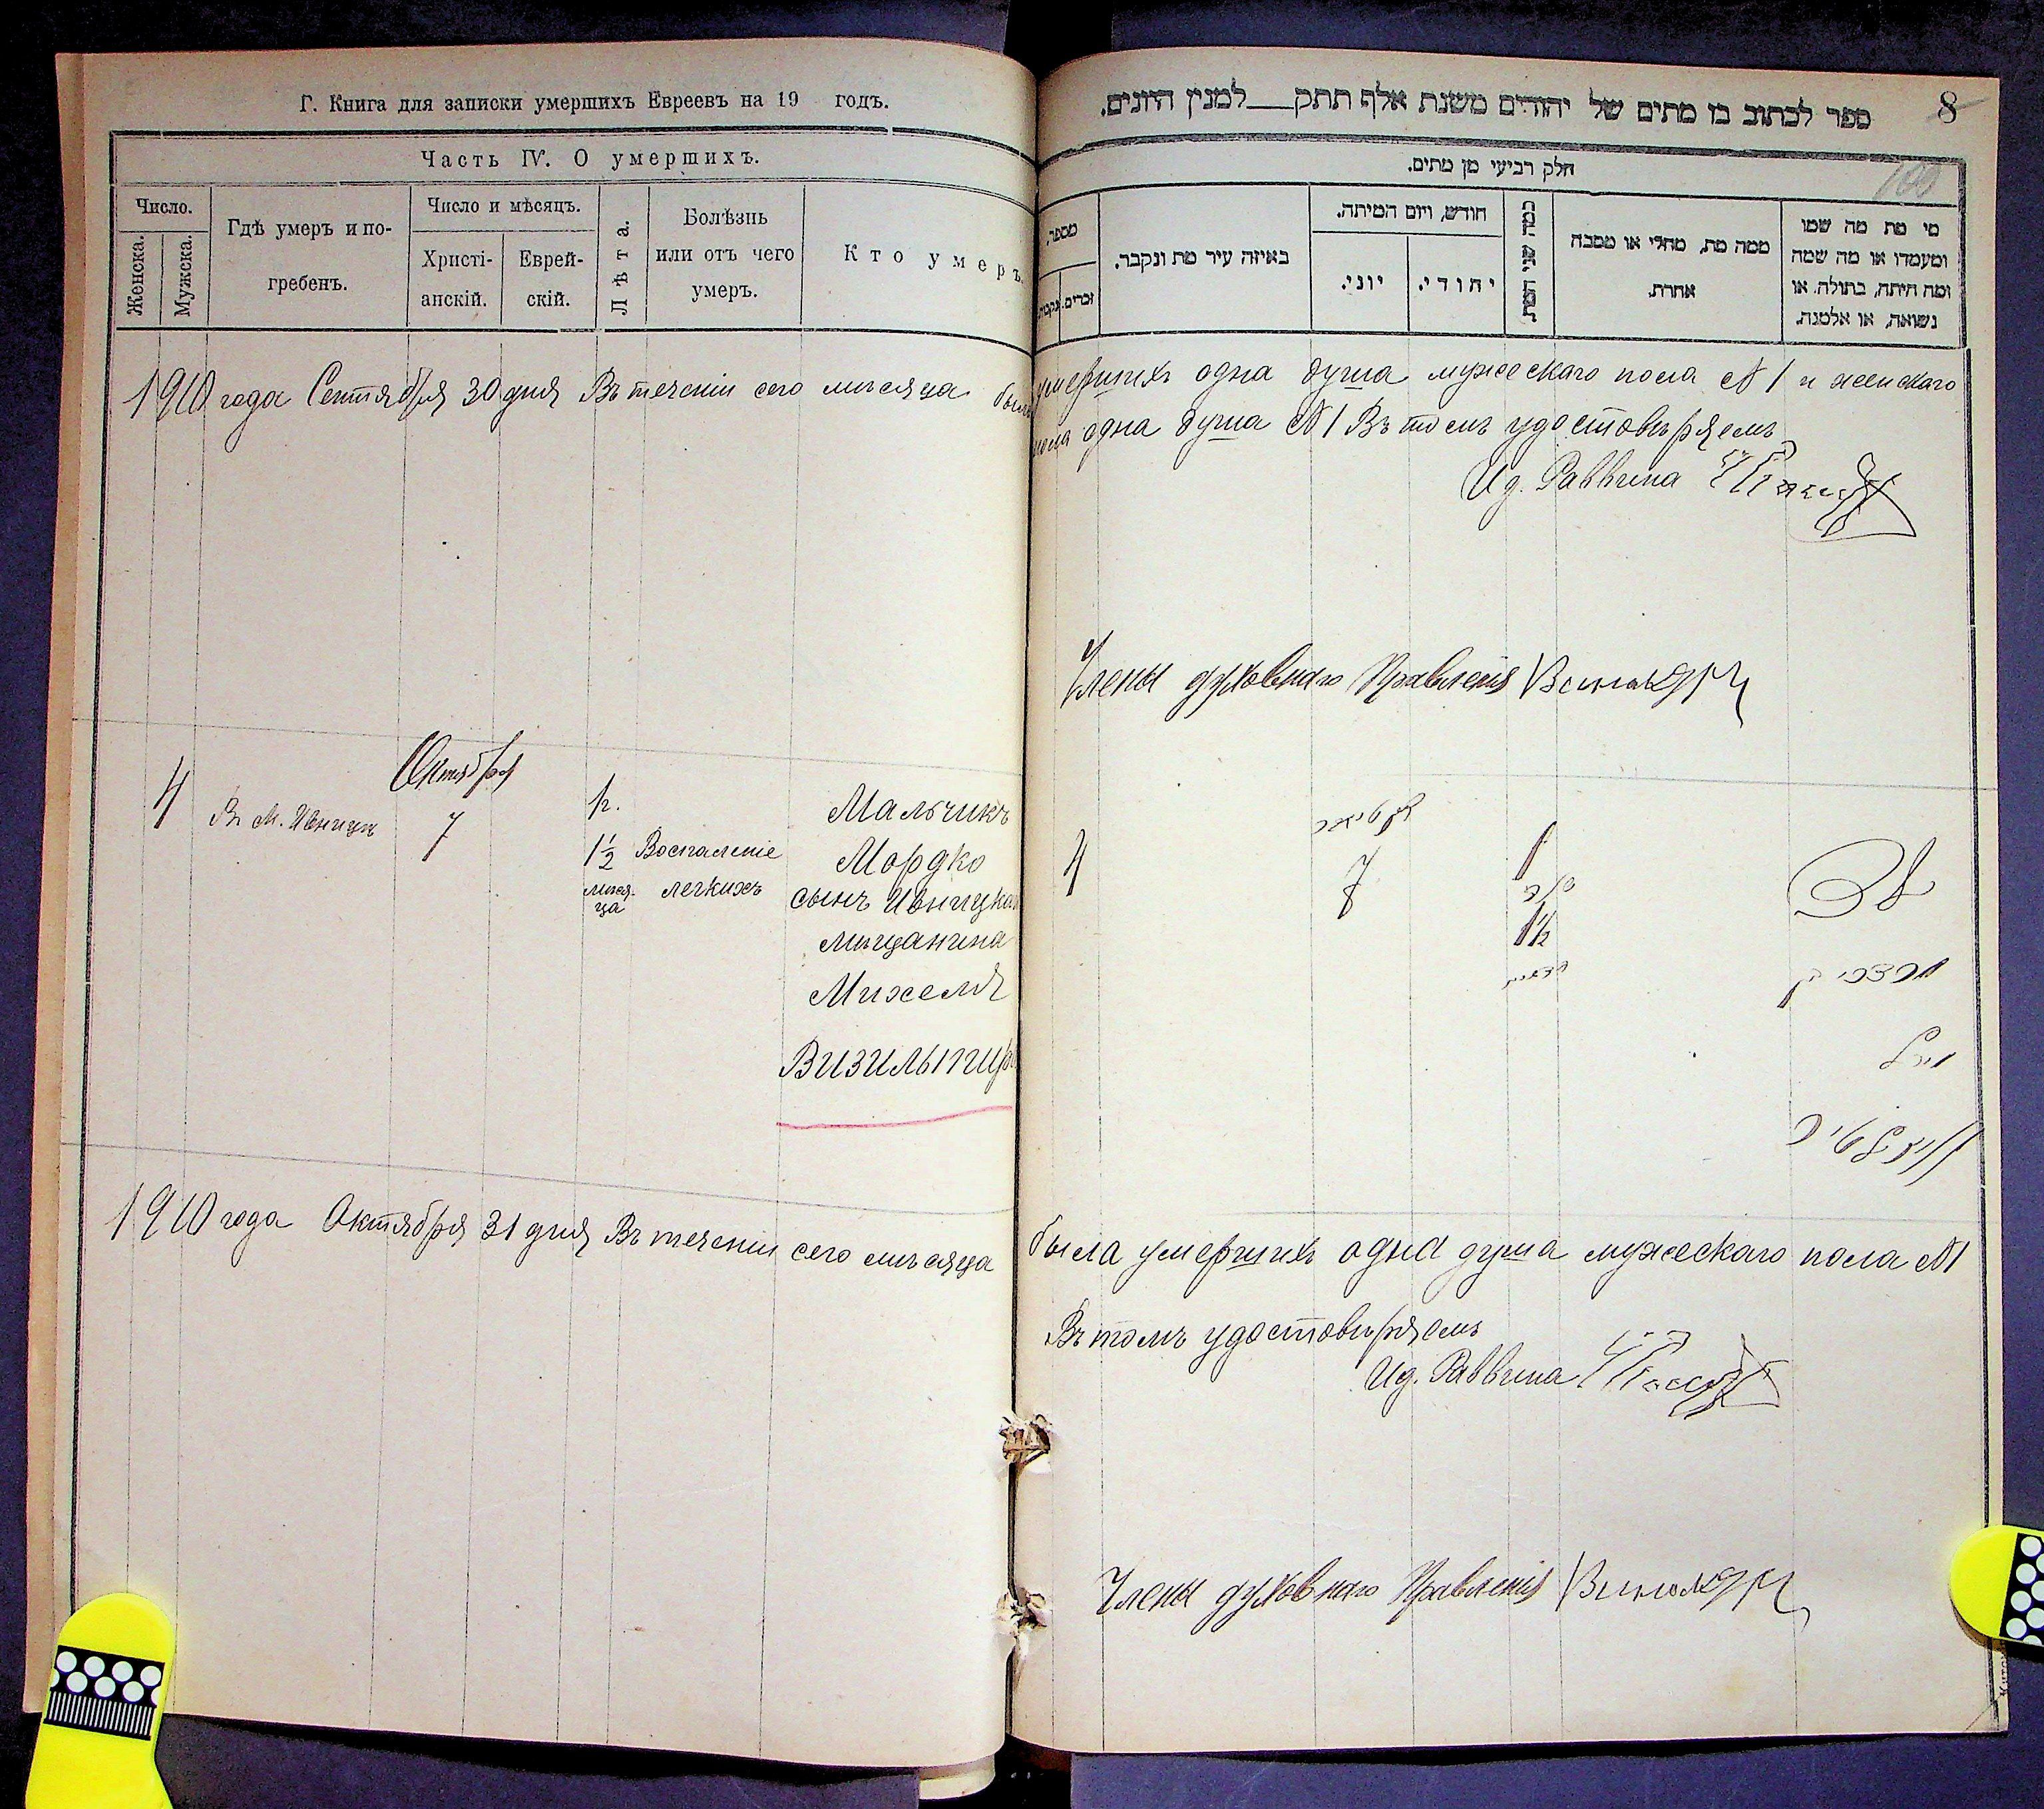 Г. Книга для записки умершихъ Евреевъ на 19 годъ.
Часть IV. О умершихъ.
Число.
Женска.
Мужска.
Гдѣ умеръ и по-
гребенъ.
Число и мѣсяцъ.
Христі-
анскій.
Еврей-
скій.
Лѣта.
Болѣзнь
или отъ чего
умеръ.
Кто умеръ.
1910 года Сентября 30 дня Въ теченіи сего мѣсяца было
4
Въ М. Ивницѣ
Октября
7
1 г.
1½
мѣся-
ца
Воспаленіе
легкихъ
Мальчикъ
Мордко
сынъ Ивницка
мѣщанина
Михеля
1910 года Октября 31 дня Въ теченіи сего мѣсяца
8
100
ספר לכתוב בו מתים של יהודים משנת אלף תתק למנין היונים.
חלק רביעי מן מתים.
מספר.
זכרים.
נקבות.
באיזה עיר מת ונקבר.
חודש, ויום המיתה.
יוני.
יהודי.
כמה שני המת.
ממה מת, מחלי או מסבה
אחרת.
מי מת מה שמו
ומעמדו או מה שמה
ומה היתה, בתולה, או
נשואה, או אלמנה.
умершихъ одна душа мужескаго пола №1 и женскаго
пола одна душа №1 Въ томъ удостовѣряемъ
Ид. Раввина
Члены духовнаго Правленія
4
7
1
1½
была умершихъ одна душа мужескаго пола №1
Въ томъ удостовѣряемъ
Ид. Раввина
Члены духовнаго Правленія